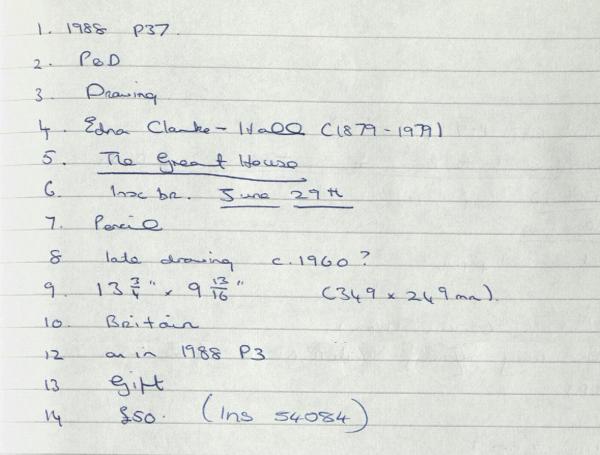 1. 1988 P37.
2. P&D
3 Drawing
4. Edna Clarke-Hall (1879-1979)
5. The Great House
6. Insc br. June 29th
7. Pencil
8 late drawing c.1960?
9. 13 3/4" x 9 13/16" (349 x 249 mm).
10. Britain
12 as in 1988 P3
13 Gift
14 £50. (Ins 54084)